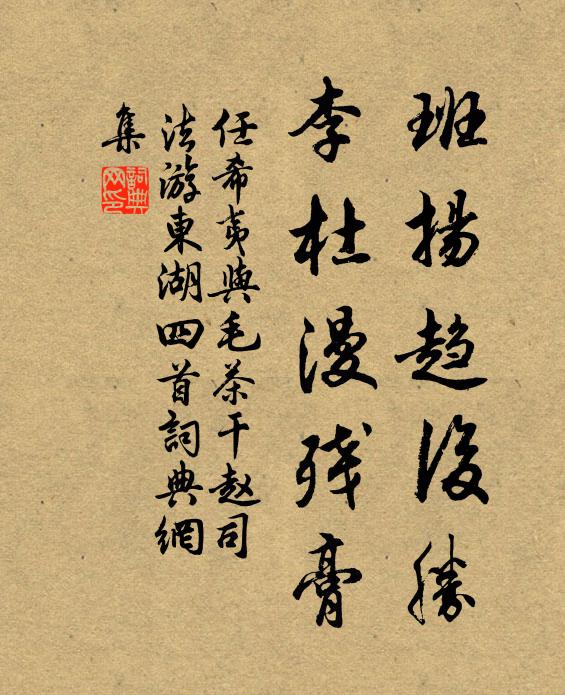 班揚趋後勝
李杜漫残膏
任希夷與毛茶干赵司
法游東湖四首詞典網
集
詞典网印